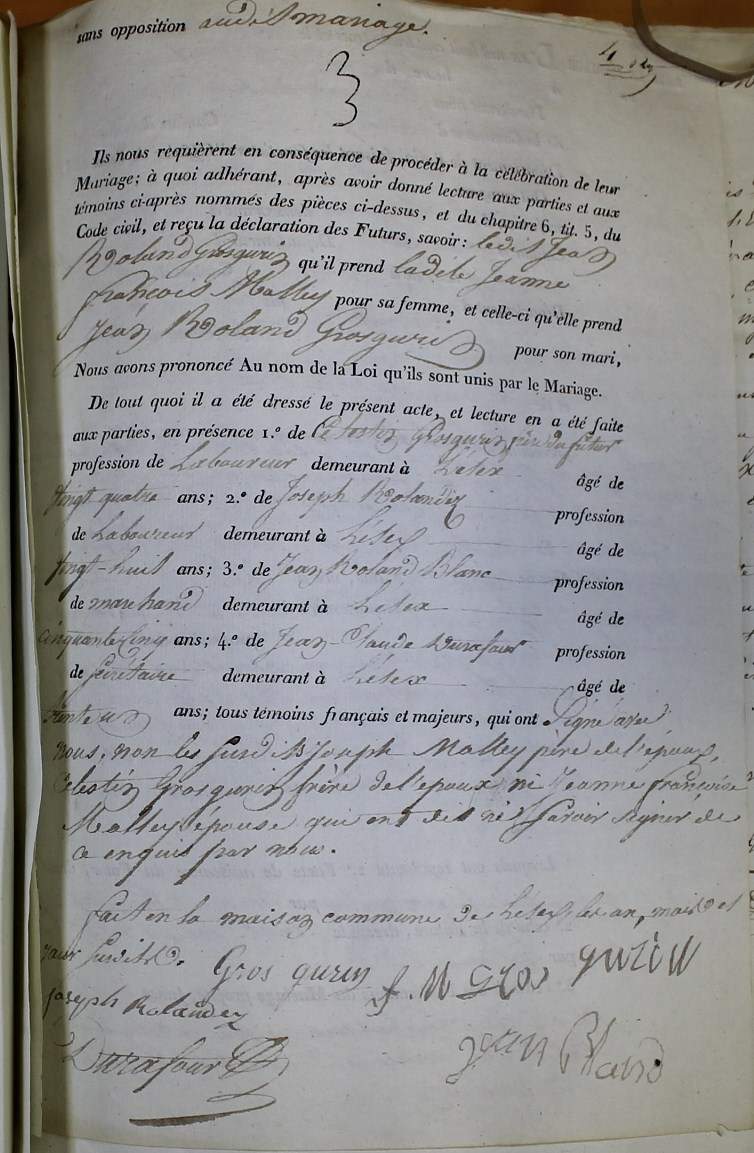 sans opposition audit mariage.
3
Ils nous requièrent en conséquence de procéder à la célébration de leur
Mariage; à quoi adhérant, après avoir donné lecture aux parties et aux
témoins ci-après nommés des pièces ci-dessus, et du chapitre 6, tit. 5, du
Code civil, et reçu la déclaration des Futurs, savoir: ledit Jean
Roland Grosgurin qu'il prend ladite Jeanne
françois Malley pour sa femme, et celle-ci qu'elle prend
Jean Roland Grosgurin pour son mari,
Nous avons prononcé Au nom de la Loi qu'ils sont unis par le Mariage.
De tout quoi il a été dressé le présent acte, et lecture en a été faite
aux parties, en présence 1.º de Celestin Grosgurin, du futur
profession de Laboureur demeurant à Lélex âgé de
vingt quatre ans; 2.º de Joseph Rolandez profession
de Laboureur demeurant à Lélex âgé de
vingt-huit ans; 3.º de Jean Roland Blanc profession
de marchand demeurant à Lélex âgé de
cinquante cinq ans; 4.º de Jean-Claude Durafour profession
de secrétaire demeurant à Lélex âgé de
trente un ans; tous témoins français et majeurs, qui ont signé avec
nous, non les susdits Joseph Malley père de l'épouse,
Celestin Grosgurin frère de l'epoux ni Jeanne françoise
Malley épouse qui ont dit ne savoir signer de
ce enquis par nous.
fait en la maison commune de Lélex les an, mois et
jour susdits. Gros gurin J. M Gros gurin
joseph Rolandez
Durafour jean Blanc